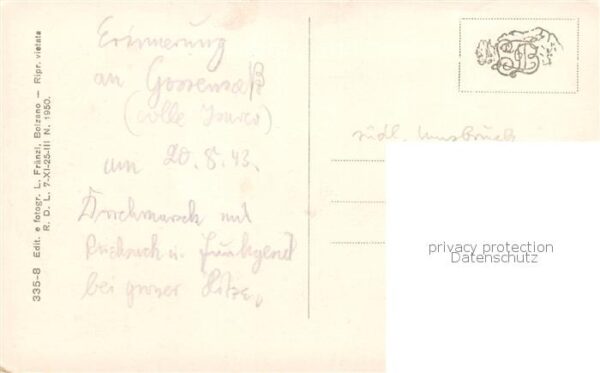 Erinnerung
an Gossensaß
(Colle Isarco)
am 20.8.43.
Durchmarsch mit
Rucksack u. Funkgerät
bei grosser Hitze.
südl. Innsbruck
335-8 Edit. e fotogr. L. Fränzl, Bolzano — Ripr. vietata
R. D. L. 7-XI-25-III N. 1950.
privacy protection
Datenschutz